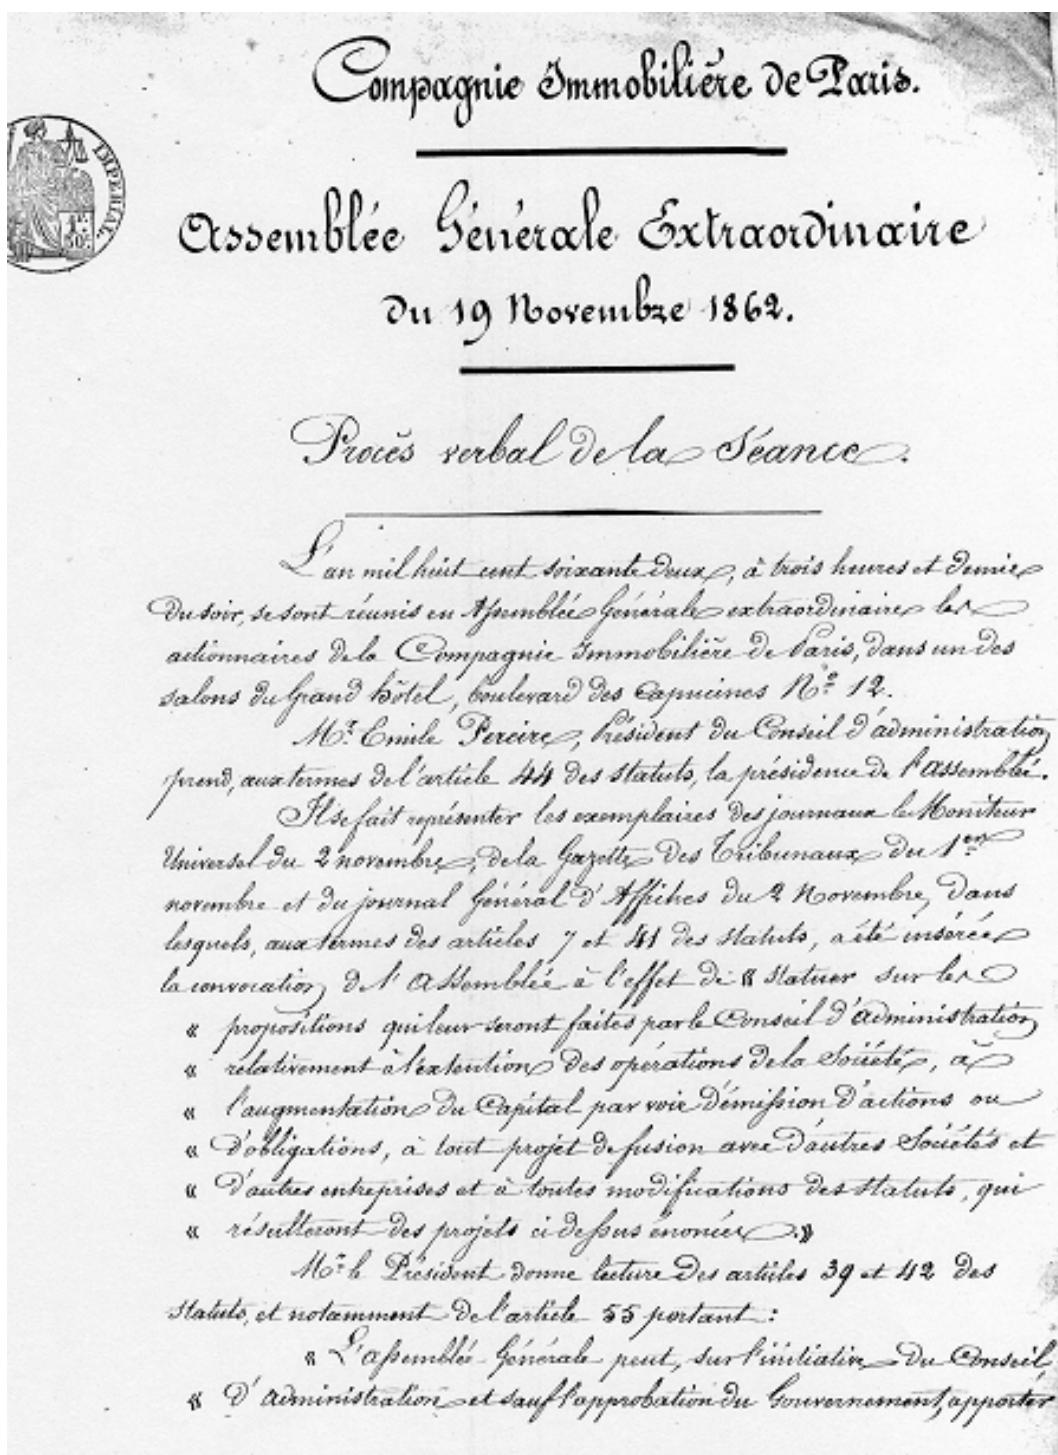 Compagnie Immobilière de Paris.
IMPERIAL
1F.
50C.
Assemblée Générale Extraordinaire
du 19 Novembre 1862.
Procès verbal de la Séance.
L'an mil huit cent soixante deux, à trois heures et demie
du soir, se sont réunis en Assemblée Générale extraordinaire les
actionnaires de la Compagnie Immobilière de Paris, dans un des
salons du Grand hôtel, boulevard des Capucines No. 12.
Mr. Emile Pereire, Président du Conseil d'administration
prend, aux termes de l'article 44 des statuts, la présidence de l'assemblée.
Il se fait représenter les exemplaires des journaux le Moniteur
Universel du 2 novembre, de la Gazette des Tribunaux du 1er
novembre et du journal Général d'Affiches du 2 Novembre, dans
lesquels, aux termes des articles 7 et 41 des statuts, a été insérée
la convocation de l'Assemblée à l'effet de « statuer sur les
« propositions qui leur seront faites par le Conseil d'administration
« relativement à l'extention des opérations de la Société, à
« l'augmentation du Capital par voie d'émission d'actions ou
« d'obligations, à tout projet de fusion avec d'autres Sociétés et
« d'autres entreprises et à toutes modifications des statuts, qui
« résulteront des projets ci dessus énoncés. »
Mr. le Président donne lecture des articles 39 et 42 des
statuts, et notamment de l'article 55 portant :
« L'assemblée Générale peut, sur l'initiative du Conseil
« d'administration et sauf l'approbation du Gouvernement, apporter